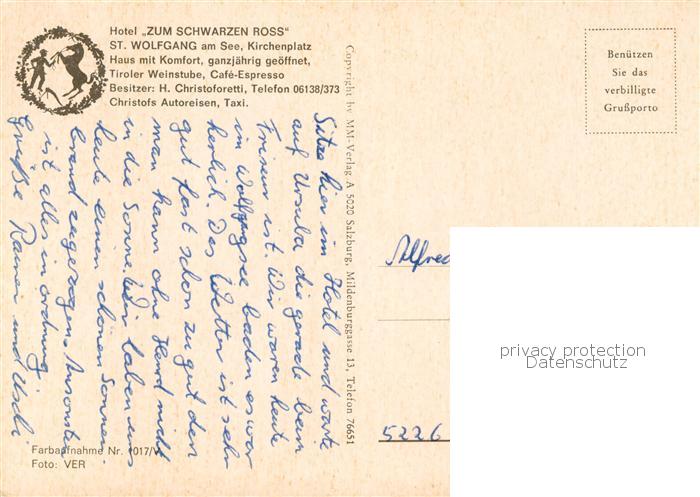 Hotel „ZUM SCHWARZEN ROSS"
ST. WOLFGANG am See, Kirchenplatz
Haus mit Komfort, ganzjährig geöffnet,
Tiroler Weinstube, Café-Espresso
Besitzer: H. Christoforetti, Telefon 06138/373
Christofs Autoreisen, Taxi.
Sitze hier im Hotel und warte
auf Ursula die gerade beim
Friseur ist. Wir waren heute
im Wolfgangsee baden es war
herlich. Das Wetter ist sehr
gut fast schon zu gut den
man kann ohne Hemd nicht
in die Sonne. Wir haben uns
heute einen schönen Sonnen-
brand zugezogen. Ansonsten
ist alles in ordnung
Grüße Rainer und Uschi
Copyright by MM-Verlag A 5020 Salzburg, Mildenburggasse 13, Telefon 76651
Benützen
Sie das
verbilligte
Grußporto
Alfred
5226
privacy protection
Datenschutz
Farbaufnahme Nr. 1017/
Foto: VER